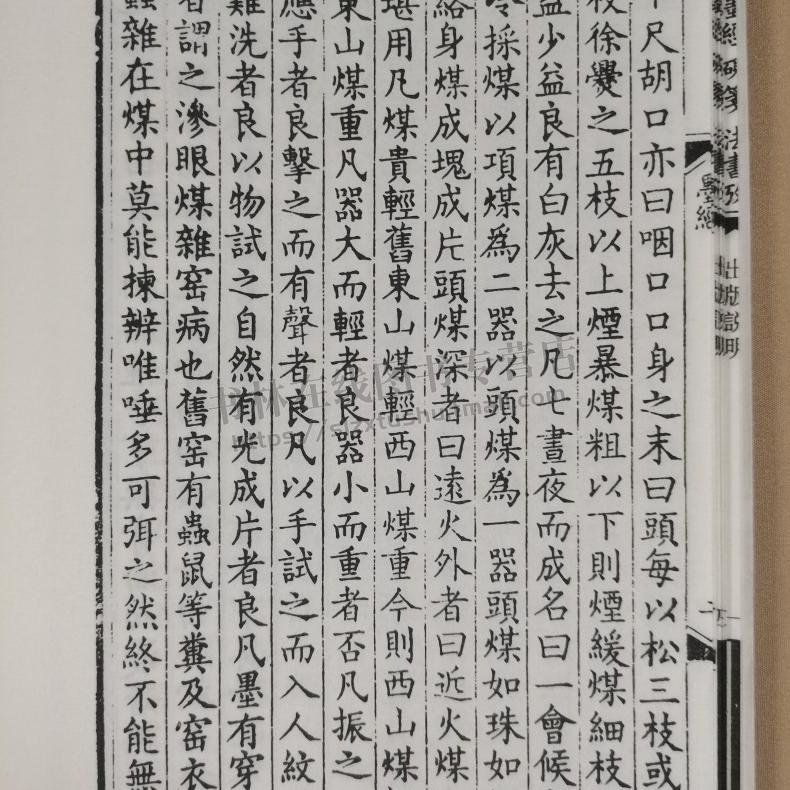 墨經
尺胡口亦曰咽口口身之末曰頭每以松三枝或
枝徐爨之五枝以上煙暴煤粗以下則煙緩煤細枝
益少益良有白灰去之凡七晝夜而成名曰一會候
冷採煤以項煤爲二器以頭煤爲一器頭煤如珠如
絡身煤成塊成片頭煤深者曰遠火外者曰近火煤
堪用凡煤貴輕舊東山煤輕西山煤重今則西山煤
東山煤重凡器大而輕者良器小而重者否凡振之
應手者良擊之而有聲者良凡以手試之而入人紋
難洗者良以物試之自然有光成片者良凡墨有穿
者謂之滲眼煤雜窑病也舊窑有蟲鼠等糞及窑衣
蟲雜在煤中莫能揀辨唯唾多可弭之然終不能無
书林在线图书专营店